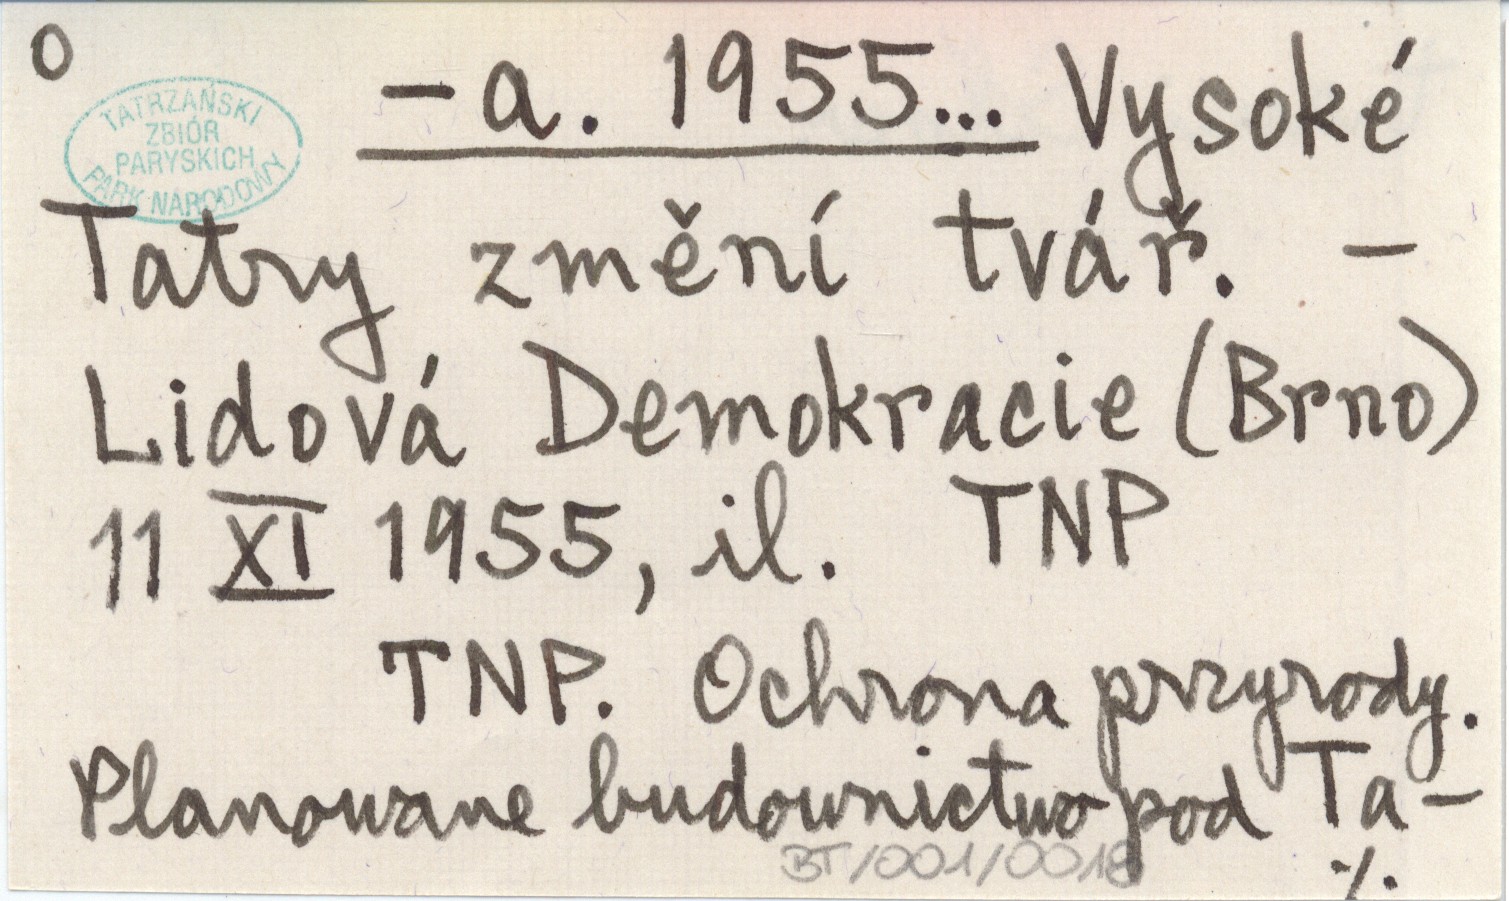 O
TATRZAŃSKI
ZBIÓR
PARYSKICH
PARK NARODOWY
– a. 1955... Vysoké
Tatry změní tvář. –
Lidová Demokracie (Brno)
11 XI 1955, il. TNP
TNP. Ochrona przyrody.
Planowane budownictwo pod Ta-
BT/001/0018
·/.